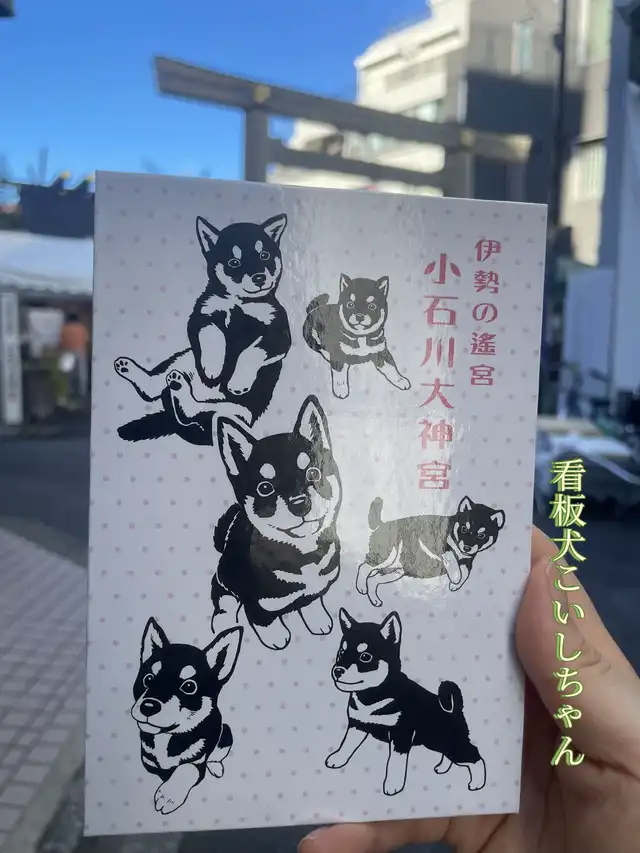 伊勢の遙宮
小石川大神宮
看板犬こいしちゃん